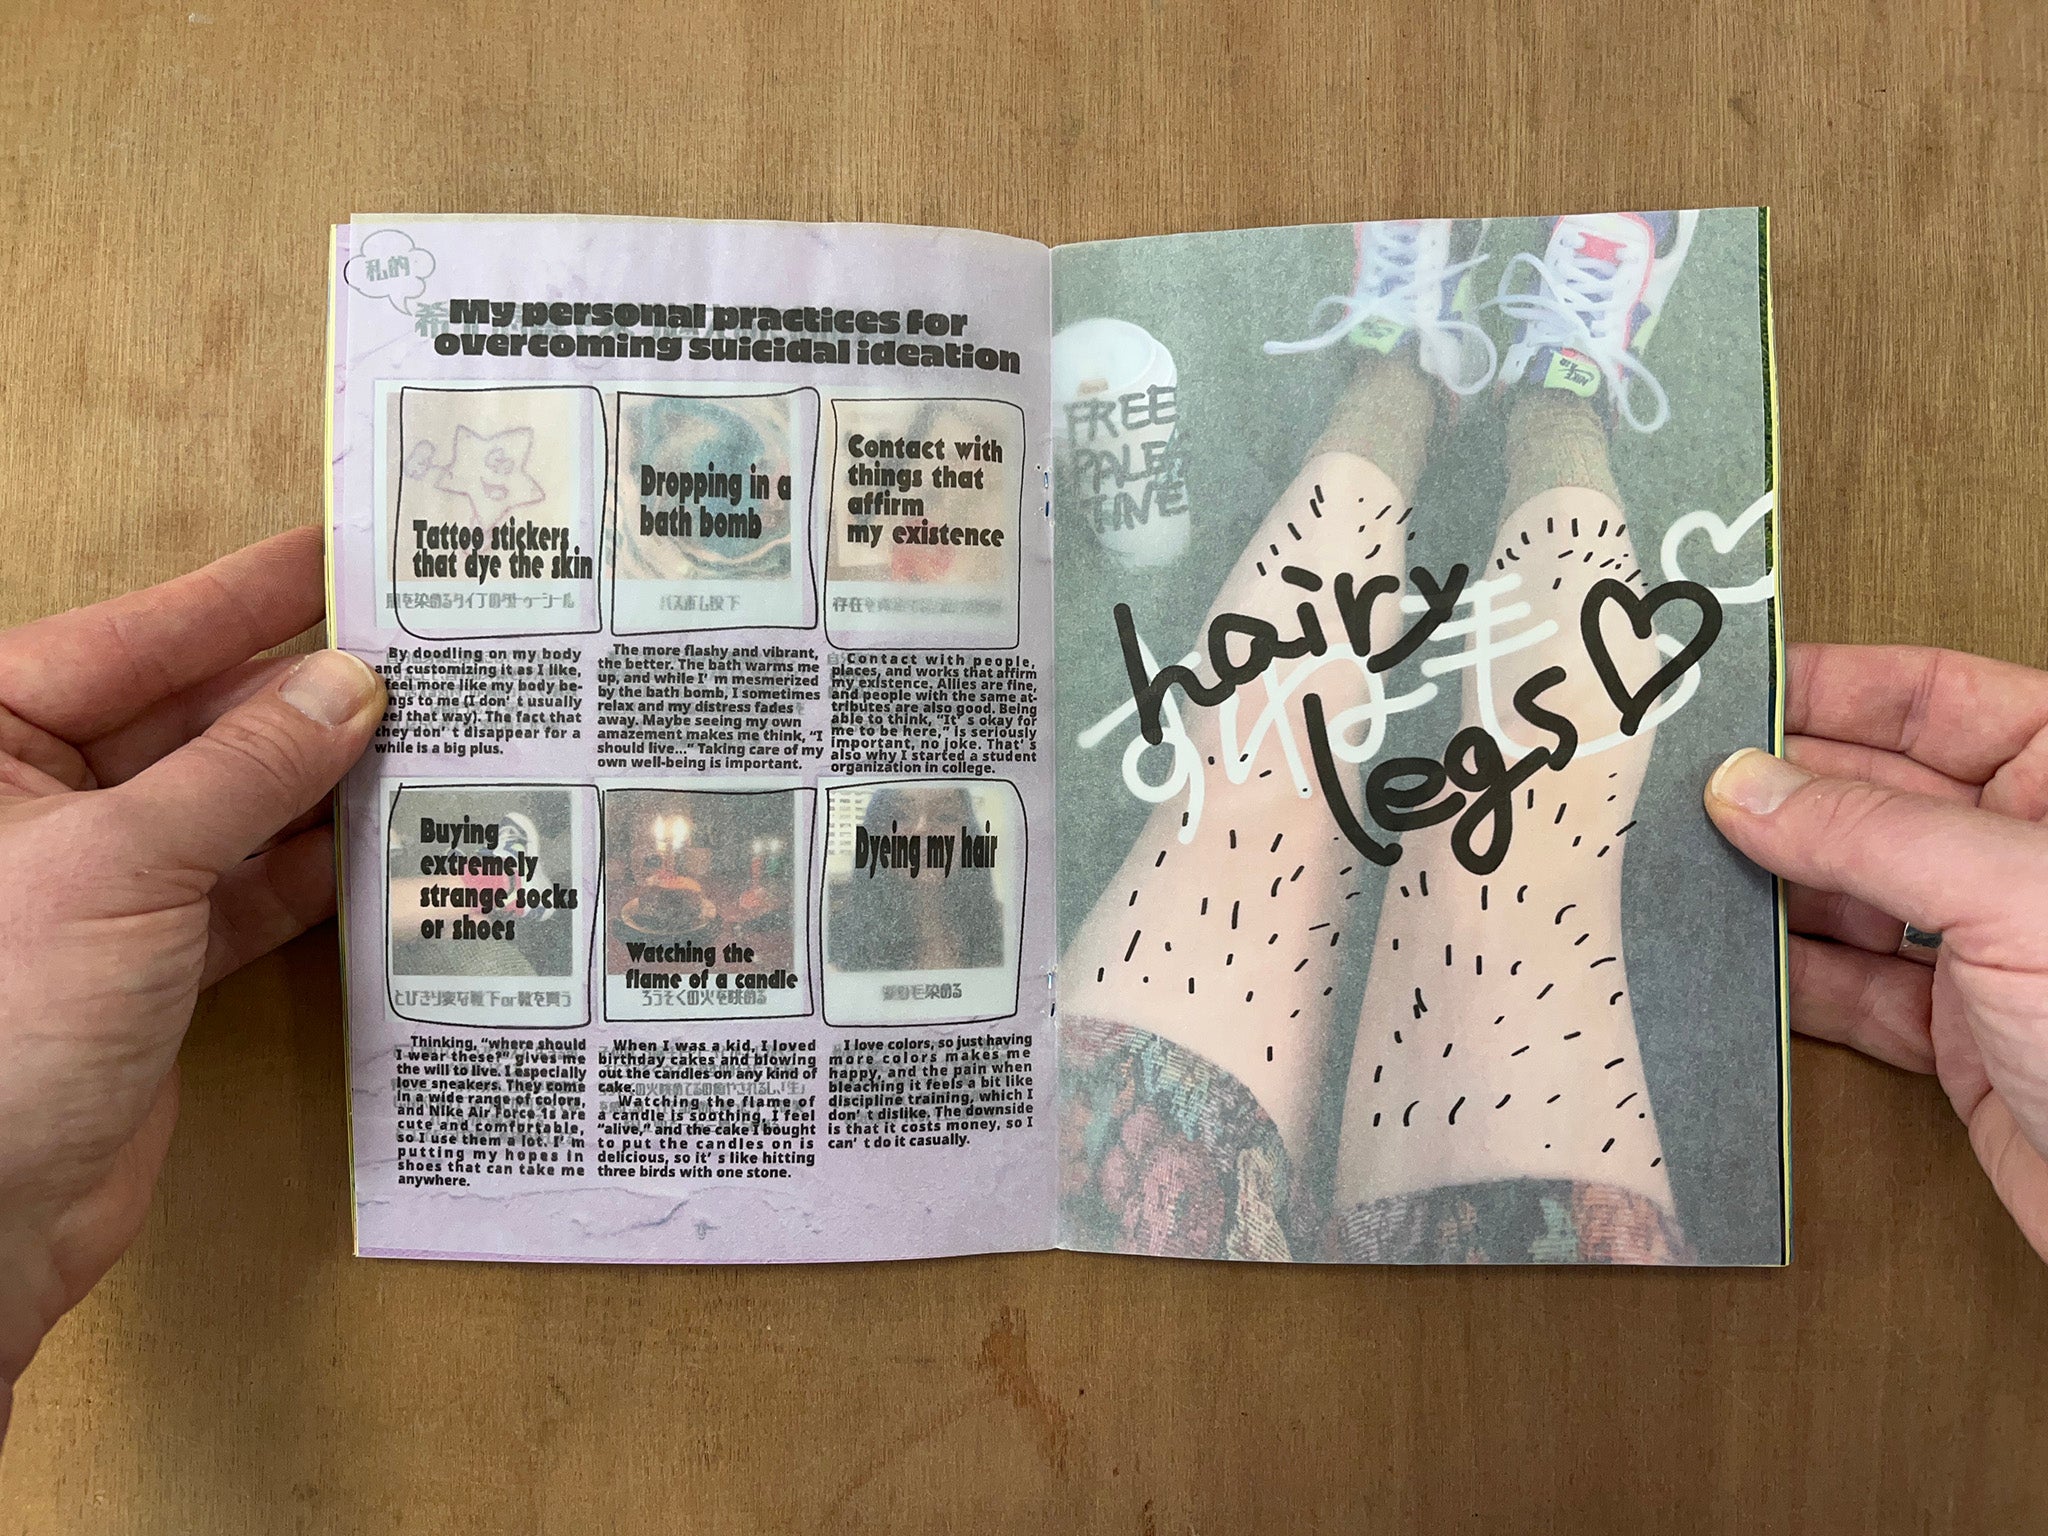 私的
My personal practices for
overcoming suicidal ideation
Tattoo stickers
that dye the skin
肌を染めるタイプのタトゥーシール
By doodling on my body
and customizing it as I like,
feel more like my body be-
ngs to me (I don't usually
eel that way). The fact that
they don't disappear for a
while is a big plus.
Dropping in a
bath bomb
バスボム投下
The more flashy and vibrant,
the better. The bath warms me
up, and while I'm mesmerized
by the bath bomb, I sometimes
relax and my distress fades
away. Maybe seeing my own
amazement makes me think, “I
should live...” Taking care of my
own well-being is important.
Contact with
things that
affirm
my existence
存在を
Contact with people,
places, and works that affirm
my existence. Allies are fine,
and people with the same at-
tributes are also good. Being
able to think, “It's okay for
me to be here,” is seriously
important, no joke. That's
also why I started a student
organization in college.
Buying
extremely
strange socks
or shoes
とびきり変な靴下or靴を買う
Thinking, “where should
I wear these?” gives me
the will to live. I especially
love sneakers. They come
in a wide range of colors,
and Nike Air Force 1s are
cute and comfortable,
so I use them a lot. I'm
putting my hopes in
shoes that can take me
anywhere.
Watching the
flame of a candle
ろうそくの火を眺める
When I was a kid, I loved
birthday cakes and blowing
out the candles on any kind of
cake.
Watching the flame of
a candle is soothing, I feel
“alive,” and the cake I bought
to put the candles on is
delicious, so it's like hitting
three birds with one stone.
Dyeing my hair
毛染める
I love colors, so just having
more colors makes me
happy, and the pain when
bleaching it feels a bit like
discipline training, which I
don't dislike. The downside
is that it costs money, so I
can't do it casually.
FREE
PALES
TINE
hairy
legs
すね毛